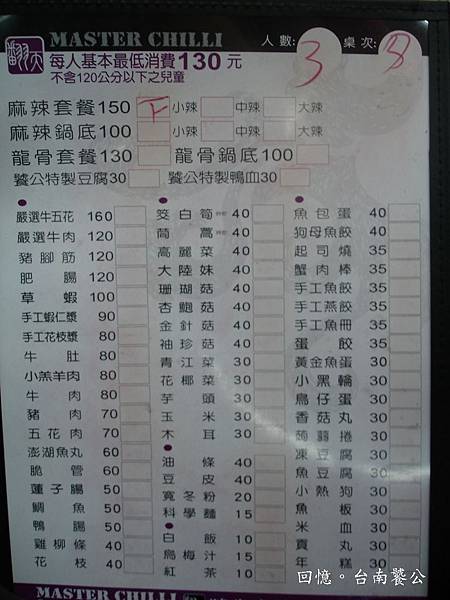 翻天 MASTER CHILLI 人數:3 桌次:8
每人基本最低消費130元
不含120公分以下之兒童
麻辣套餐150 下 小辣 中辣 大辣
麻辣鍋底100 小辣 中辣 大辣
龍骨套餐130 龍骨鍋底100
饕公特製豆腐30 饕公特製鴨血30
嚴選牛五花 160
嚴選牛肉 120
豬腳筋 120
肥腸 120
草蝦 100
手工蝦仁漿 90
手工花枝漿 80
牛肚 80
小羔羊肉 80
牛肉 80
豬肉 70
五花肉 70
澎湖魚丸 60
脆管 60
蓮子腸 50
鯛魚 50
鴨腸 50
雞柳條 40
花枝 40
筊白筍 40
茼蒿 40
高麗菜 40
大陸妹 40
珊瑚菇 40
杏鮑菇 40
金針菇 40
袖珍菇 40
青江菜 30
花椰菜 30
芋頭 30
玉米 30
木耳 30
油條 40
豆皮 40
寬冬粉 20
科學麵 15
白飯 10
烏梅汁 15
紅茶 10
魚包蛋 40
狗母魚餃 40
起司燒 35
蟹肉棒 35
手工魚餃 35
手工燕餃 35
手工魚冊 35
蛋餃 35
黃金魚蛋 30
小黑輪 30
鳥仔蛋 30
香菇丸 30
蒟蒻捲 30
凍豆腐 30
魚豆腐 30
小熱狗 30
魚板 30
米血 30
貢丸 30
年糕 30
MASTER CHILLI
回憶。台南饕公